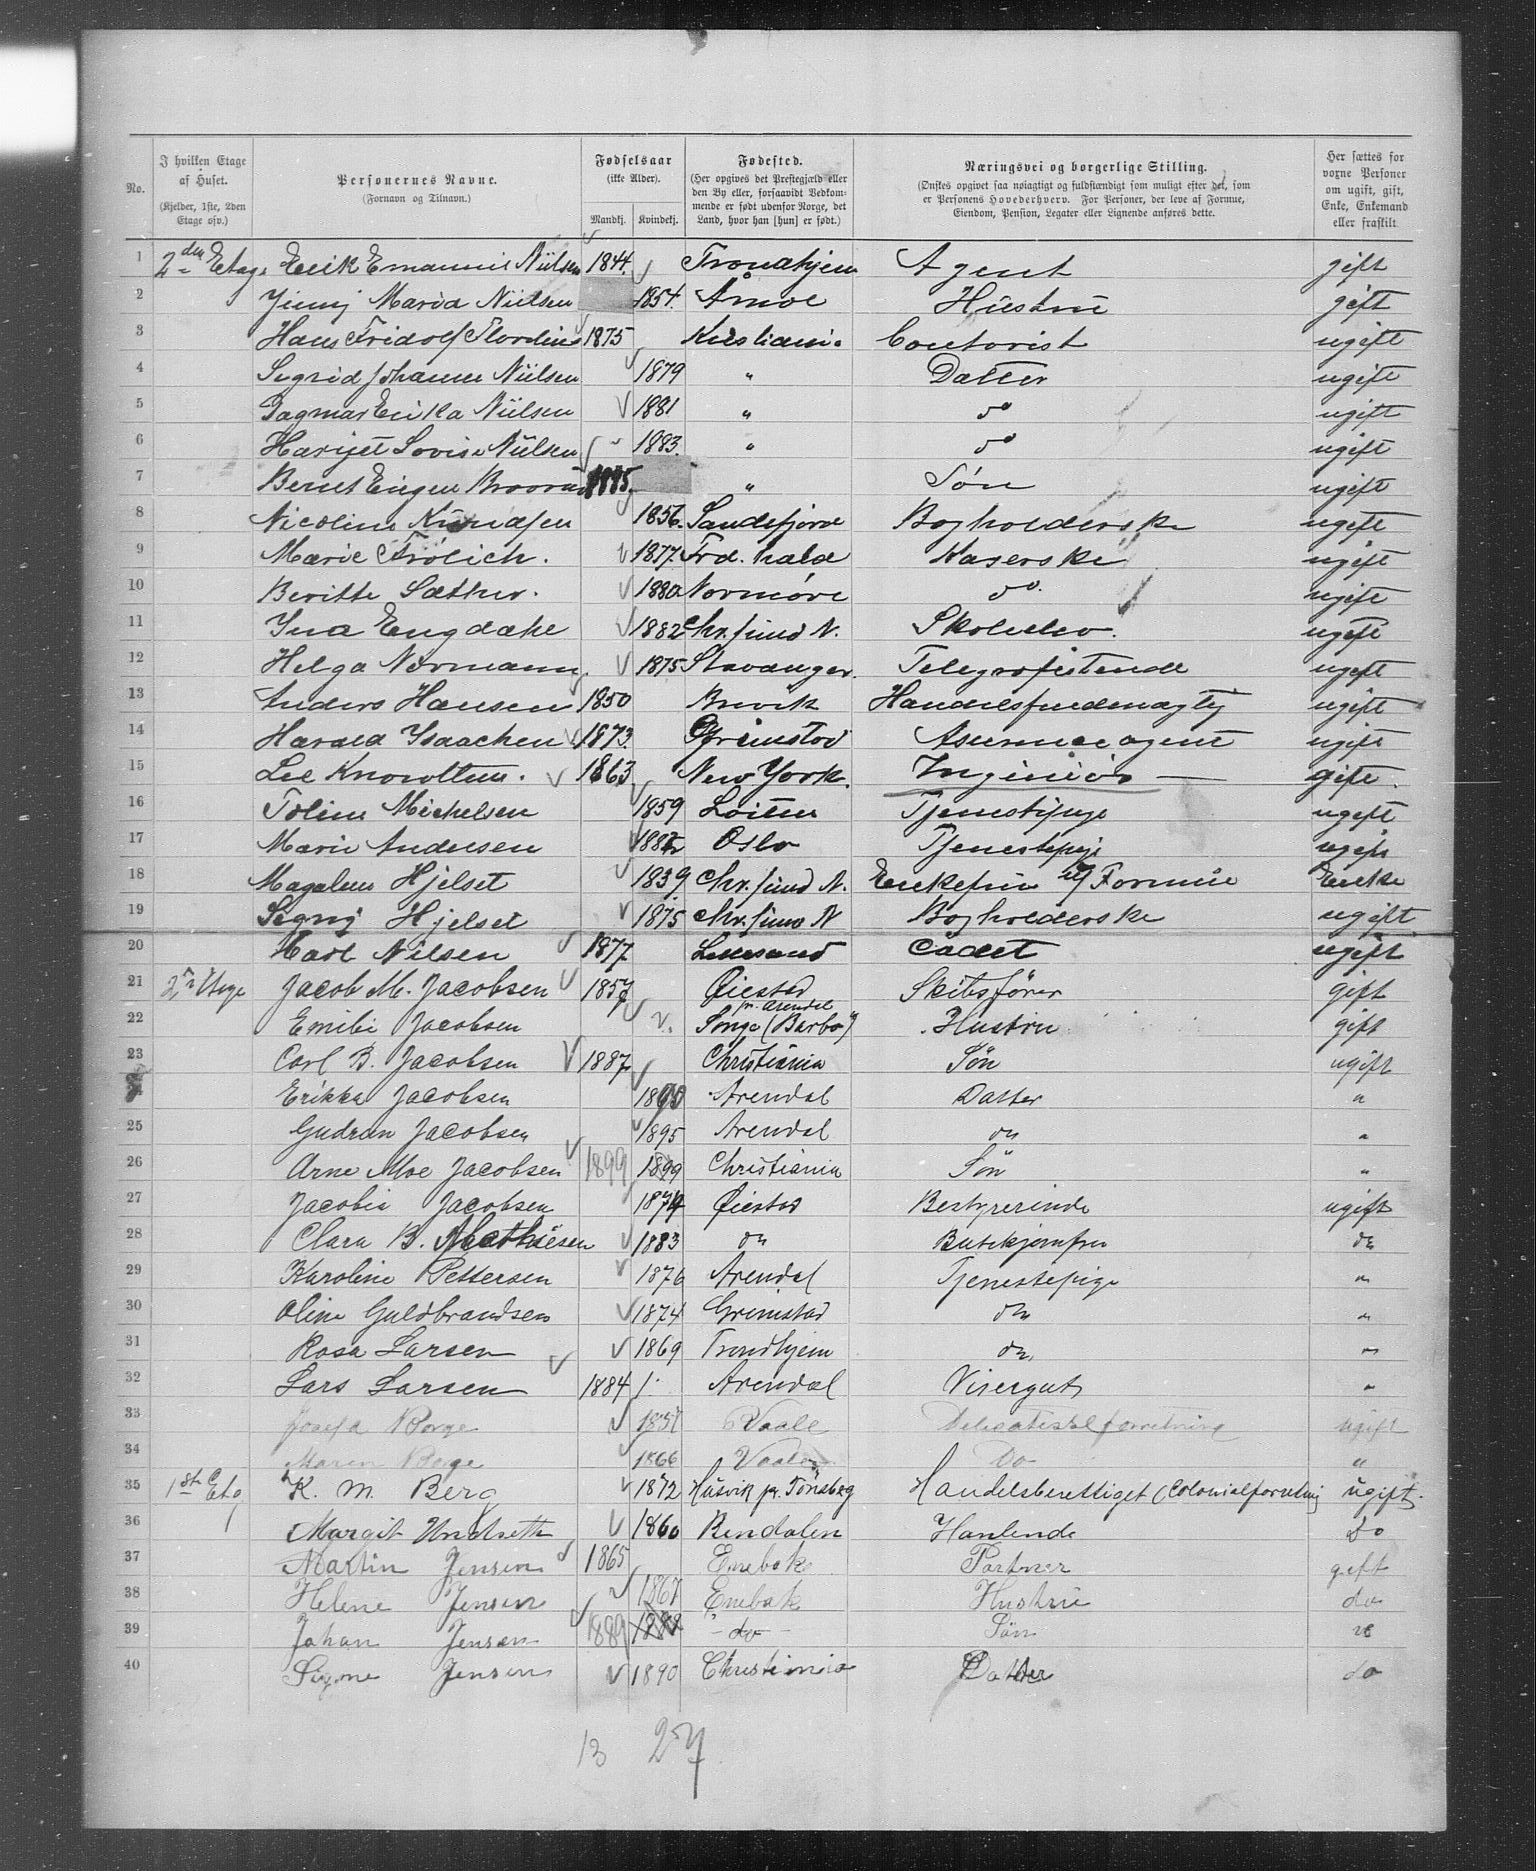 No. | I hvilken Etage af Huset. (Kjelder, 1ste, 2den Etage osv.) | Personernes Navne. (Fornavn og Tilnavn.) | Fødselsaar (ikke Alder). Mandkj. Kvindekj. | Fødested. (Her opgives det Prestegjæld eller den By eller, forsaavidt Vedkommende er født udenfor Norge, det Land, hvor han [hun] er født.) | Næringsvei og borgerlige Stilling. (Ønskes opgivet saa nøiagtigt og fuldstændigt som muligt efter det, som er Personens Hovederhverv. For Personer, der leve af Formue, Eiendom, Pension, Legater eller Lignende anføres dette. | Her sættes for vorne Personer om ugift, gift, Enke, Enkemand eller fraskilt.
1 2den Etage Erik Emanuel Nilsen 1844. Trondhjem Agent gift
2 Jenny Maria Nilsen 1854. Hustru gift
3 Hans Fridolf 1875 Kristiania Contorist ugift
4 Sigrid Johanne Nilsen 1879 " Datter ugift
5 Dagmar Erika Nilsen 1881 " do ugift
6 Harijet Lovise Nilsen 1883. " do ugift
7 Bernt Eugen 1885 " Søn ugift
8 Nicoline Knudsen 1856. Sandefjord Bogholderske ugift
9 Marie Frölich. 1877. Frd. hald Kaserske ugift
10 Beritte Sæther. 1880 Normöre do. ugift
11 Ina Engdahl 1882 Chr. sund N. Skoleelev. ugift
12 Helga Normann. 1875 Stavanger. Telegrafistende ugift
13 Anders Hansen 1850 Brevik Handelsfuldmægtig ugift
14 Harald Isaachsen 1873. Grimstad Asurance agent ugift
15 Lee 1863 New York. Ingeniör gift.
16 Toline Michelsen 1859 Löiten Tjenestepige ugift
17 Marie Andersen 1882 Oslo Tjenestepige ugift
18 Magdalene Hjelset 1839 Chr. sund N. Enkefru af Formue Enke
19 Signy Hjelset 1875 Chr. sund N Bogholderske ugift
20 Karl Nilsen 1877 Lillesand Cadet ugift
21 2n Etage Jacob M. Jacobsen 1857 Øiestad Skibsfører gift
22 Emilie Jacobsen Songe (Barbo) pr. Arendal Hustru gift
23 Carl B. Jacobsen 1887 Christiania Sön ugift
24 Erikka Jacobsen 1890 Arendal Datter "
25 Gudrun Jacobsen 1895 Arendal do "
26 Arne Moe Jacobsen 1899 1899 Christiania Sön "
27 Jacobie Jacobsen 1874 Øiestad Bestyrerinde ugift
28 Clara B. Mathiesen 1883 do Butikjomfru do
29 Karoline Pettersen 1876 Arendal Tjenestepige "
30 Oline Guldbrandsen 1874 Grimstad do "
31 Rosa Larsen 1869 Trondhjem do "
32 Lars Larsen 1884 Arendal Visergut "
33 Josefa Borge 1857 Vaale Delicatesseforretning ugift
34 Maren Borge 1866 Vaale Do "
35 1st Etg K. M. Berg 1872 Husvik pr. Tönsberg Handelsberettiget (Colonialforretning ugift.
36 Margit Undseth 1860 Rendalen Hanlende do
37 Martin Jensen 1865 Enebak Portner gift
38 Helene Jensen 1867 Enebak Hustru do
39 Johan Jensen 1889 1888 - do - Sön
40 Signe Jensen 1890 Christiania Datter do
13 27